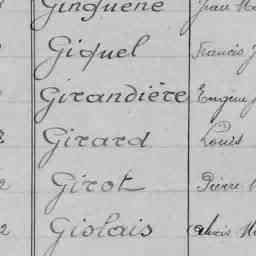 Ginguené Jean
Giquel Francis J
Girandière Eugène
Girard Louis
2 Girot Pierre
2 Gislais Alexis M